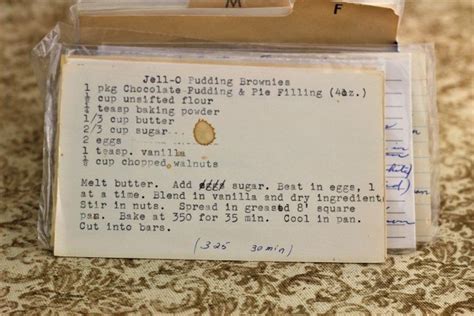 M
F
Jell-O Pudding Brownies
1 pkg Chocolate Pudding & Pie Filling (4oz.)
½ cup unsifted flour
¼ teasp baking powder
1/3 cup butter
2/3 cup sugar
2 eggs
1 teasp. vanilla
½ cup chopped walnuts
Melt butter. Add sugar. Beat in eggs, 1
at a time. Blend in vanilla and dry ingredient
Stir in nuts. Spread in greased 8' square
pan. Bake at 350 for 35 min. Cool in pan.
Cut into bars.
(325 30 min)